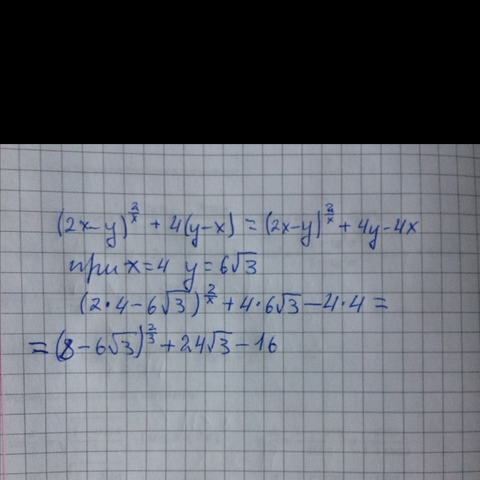 (2x-y)^(2/x) + 4(y-x) = (2x-y)^(2/x) + 4y-4x
при x=4 y=6√3
(2·4-6√3)^(2/x) + 4·6√3-4·4 =
= (8-6√3)^(2/3) + 24√3-16